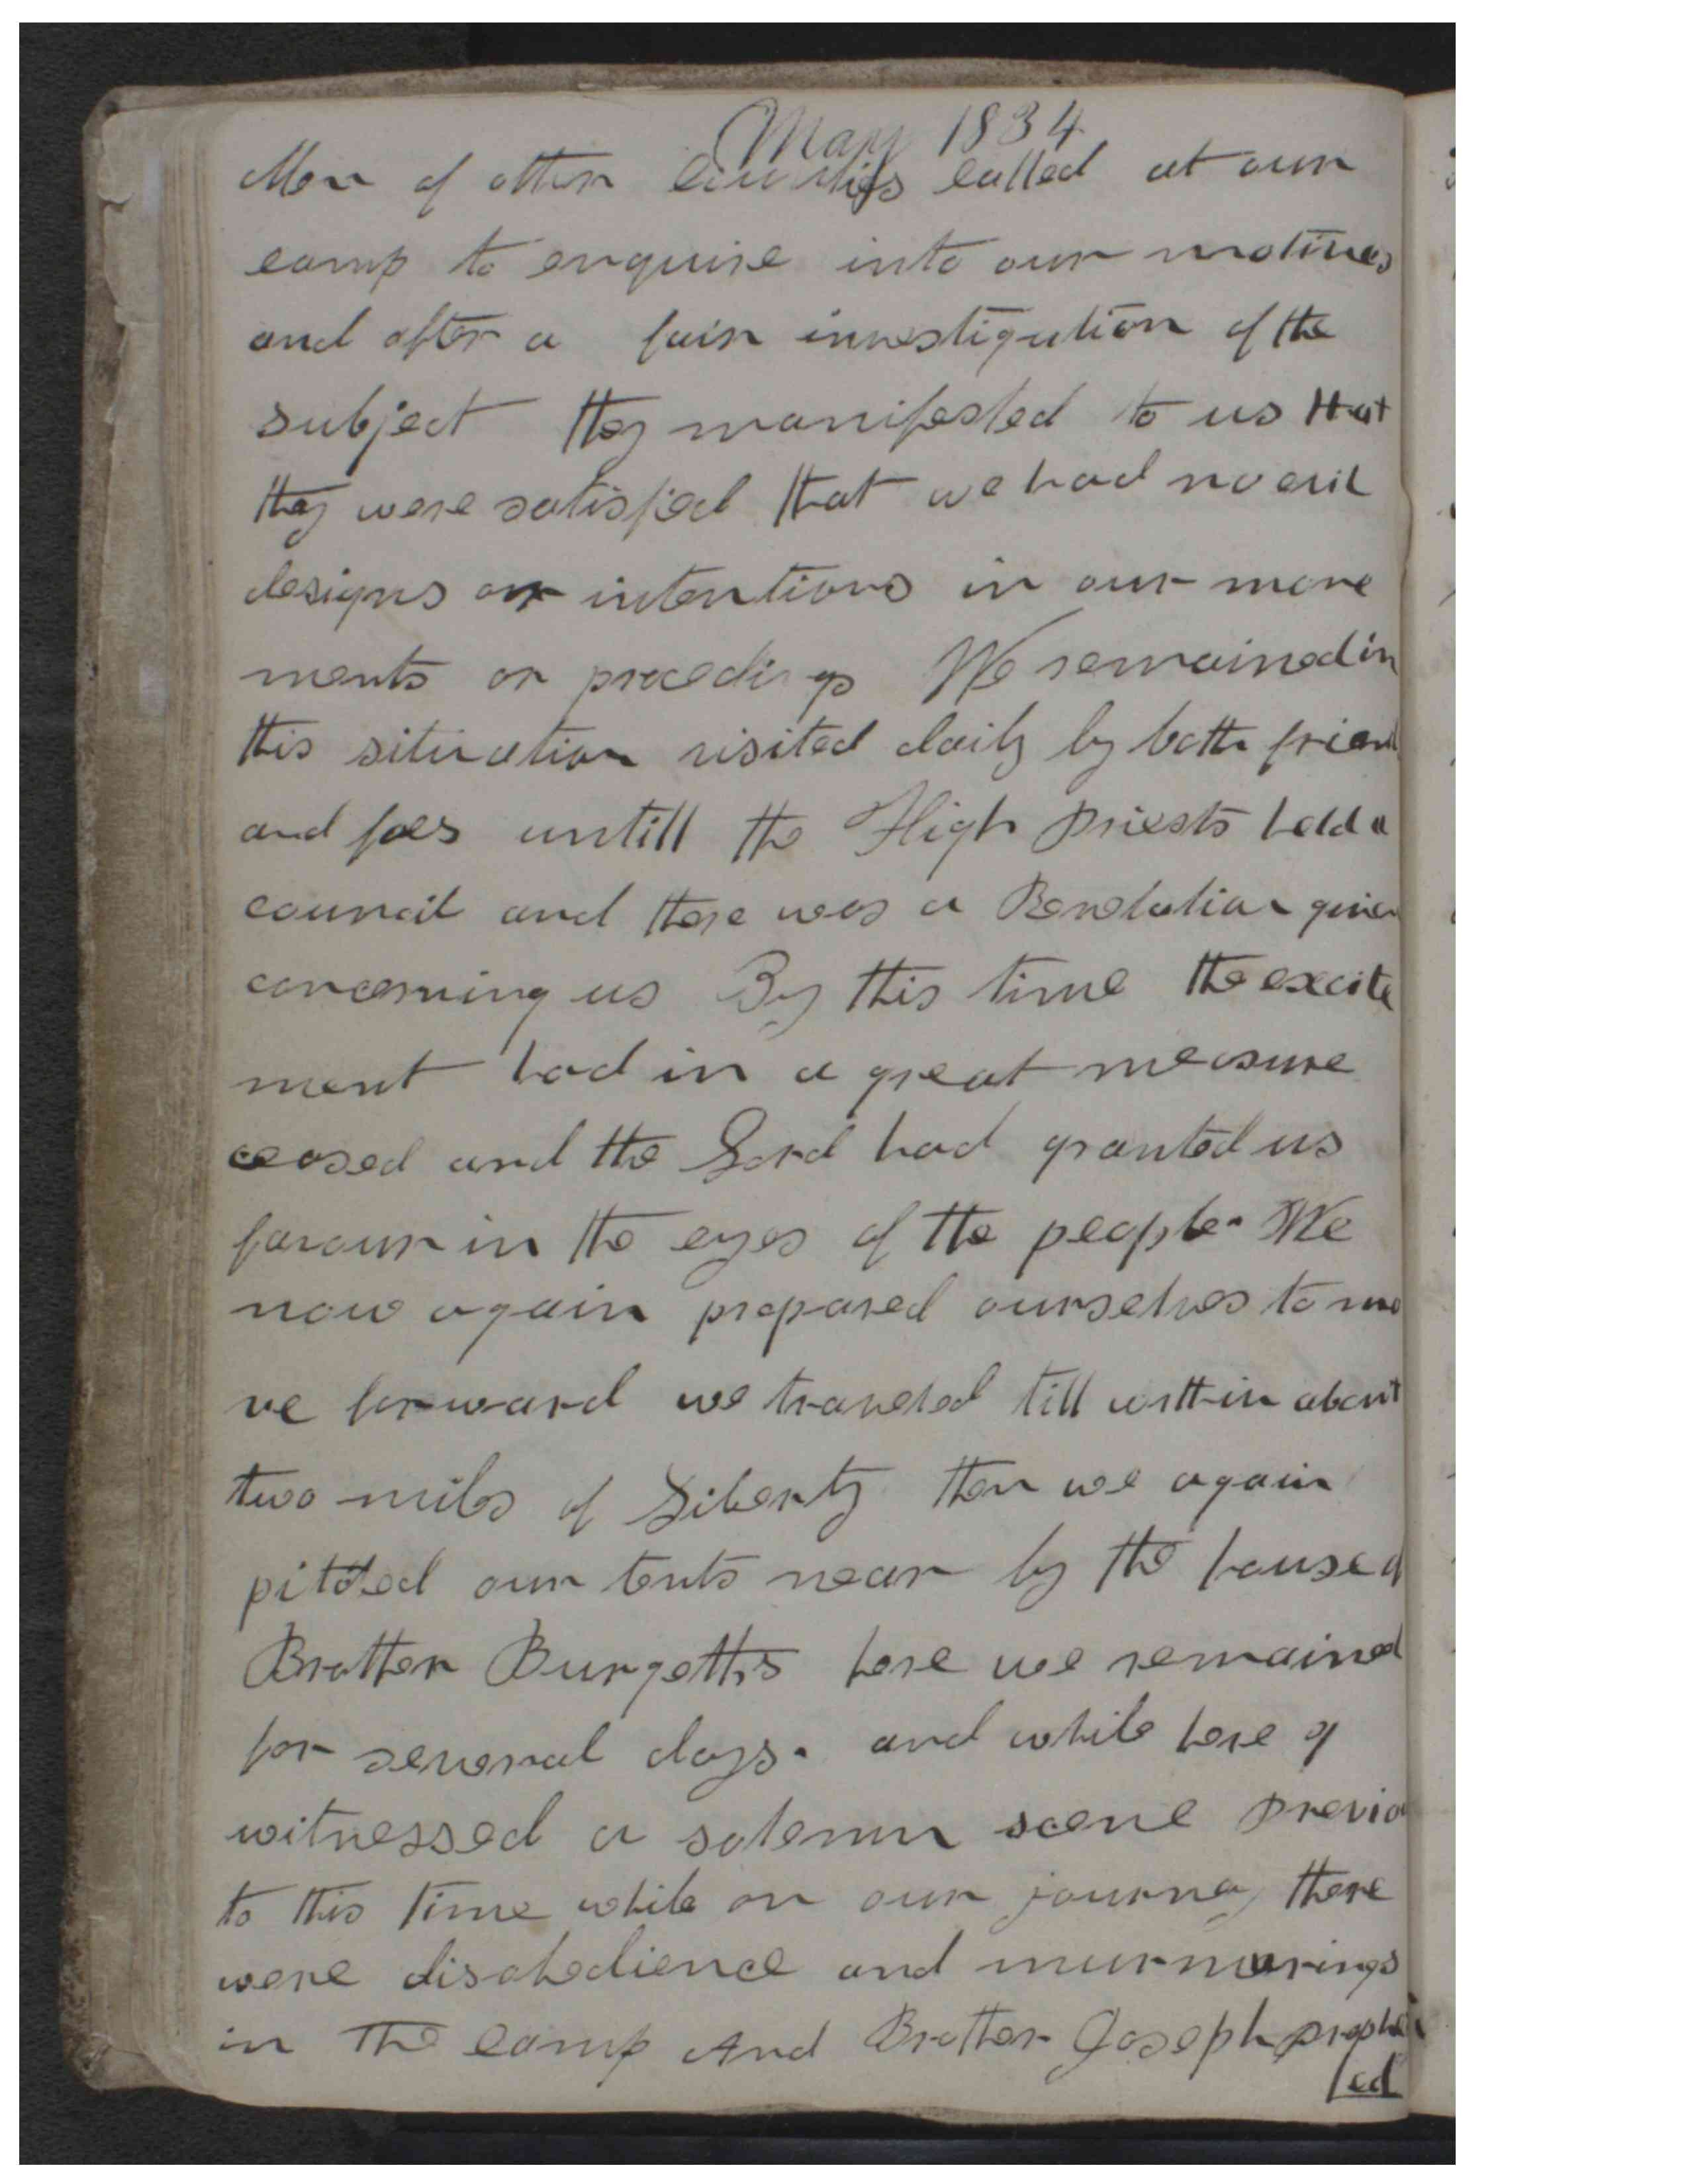 May 1834
Men of other counties called at our
camp to enquire into our motives
and after a fair investigation of the
subject they manifested to us that
they were satisfied that we had no evil
designs or intentions in our move
ments or procedings We remained in
this situation visited daily by both friend
and foes untill the High Priests held a
council and there was a Revelation given
concerning us By this time the excite
ment had in a great measure
ceased and the Lord had granted us
favour in the eyes of the people. We
now again prepared ourselves to mo
ve forward we traveled till within about
two miles of Liberty then we again
pitched our tents near by the house of
Brother Burgetths here we remained
for several days. and while here I
witnessed a solemn scene Previo
to this time while on our journey there
were disobedience and murmurings
in the camp And Brother Joseph prophe
ed